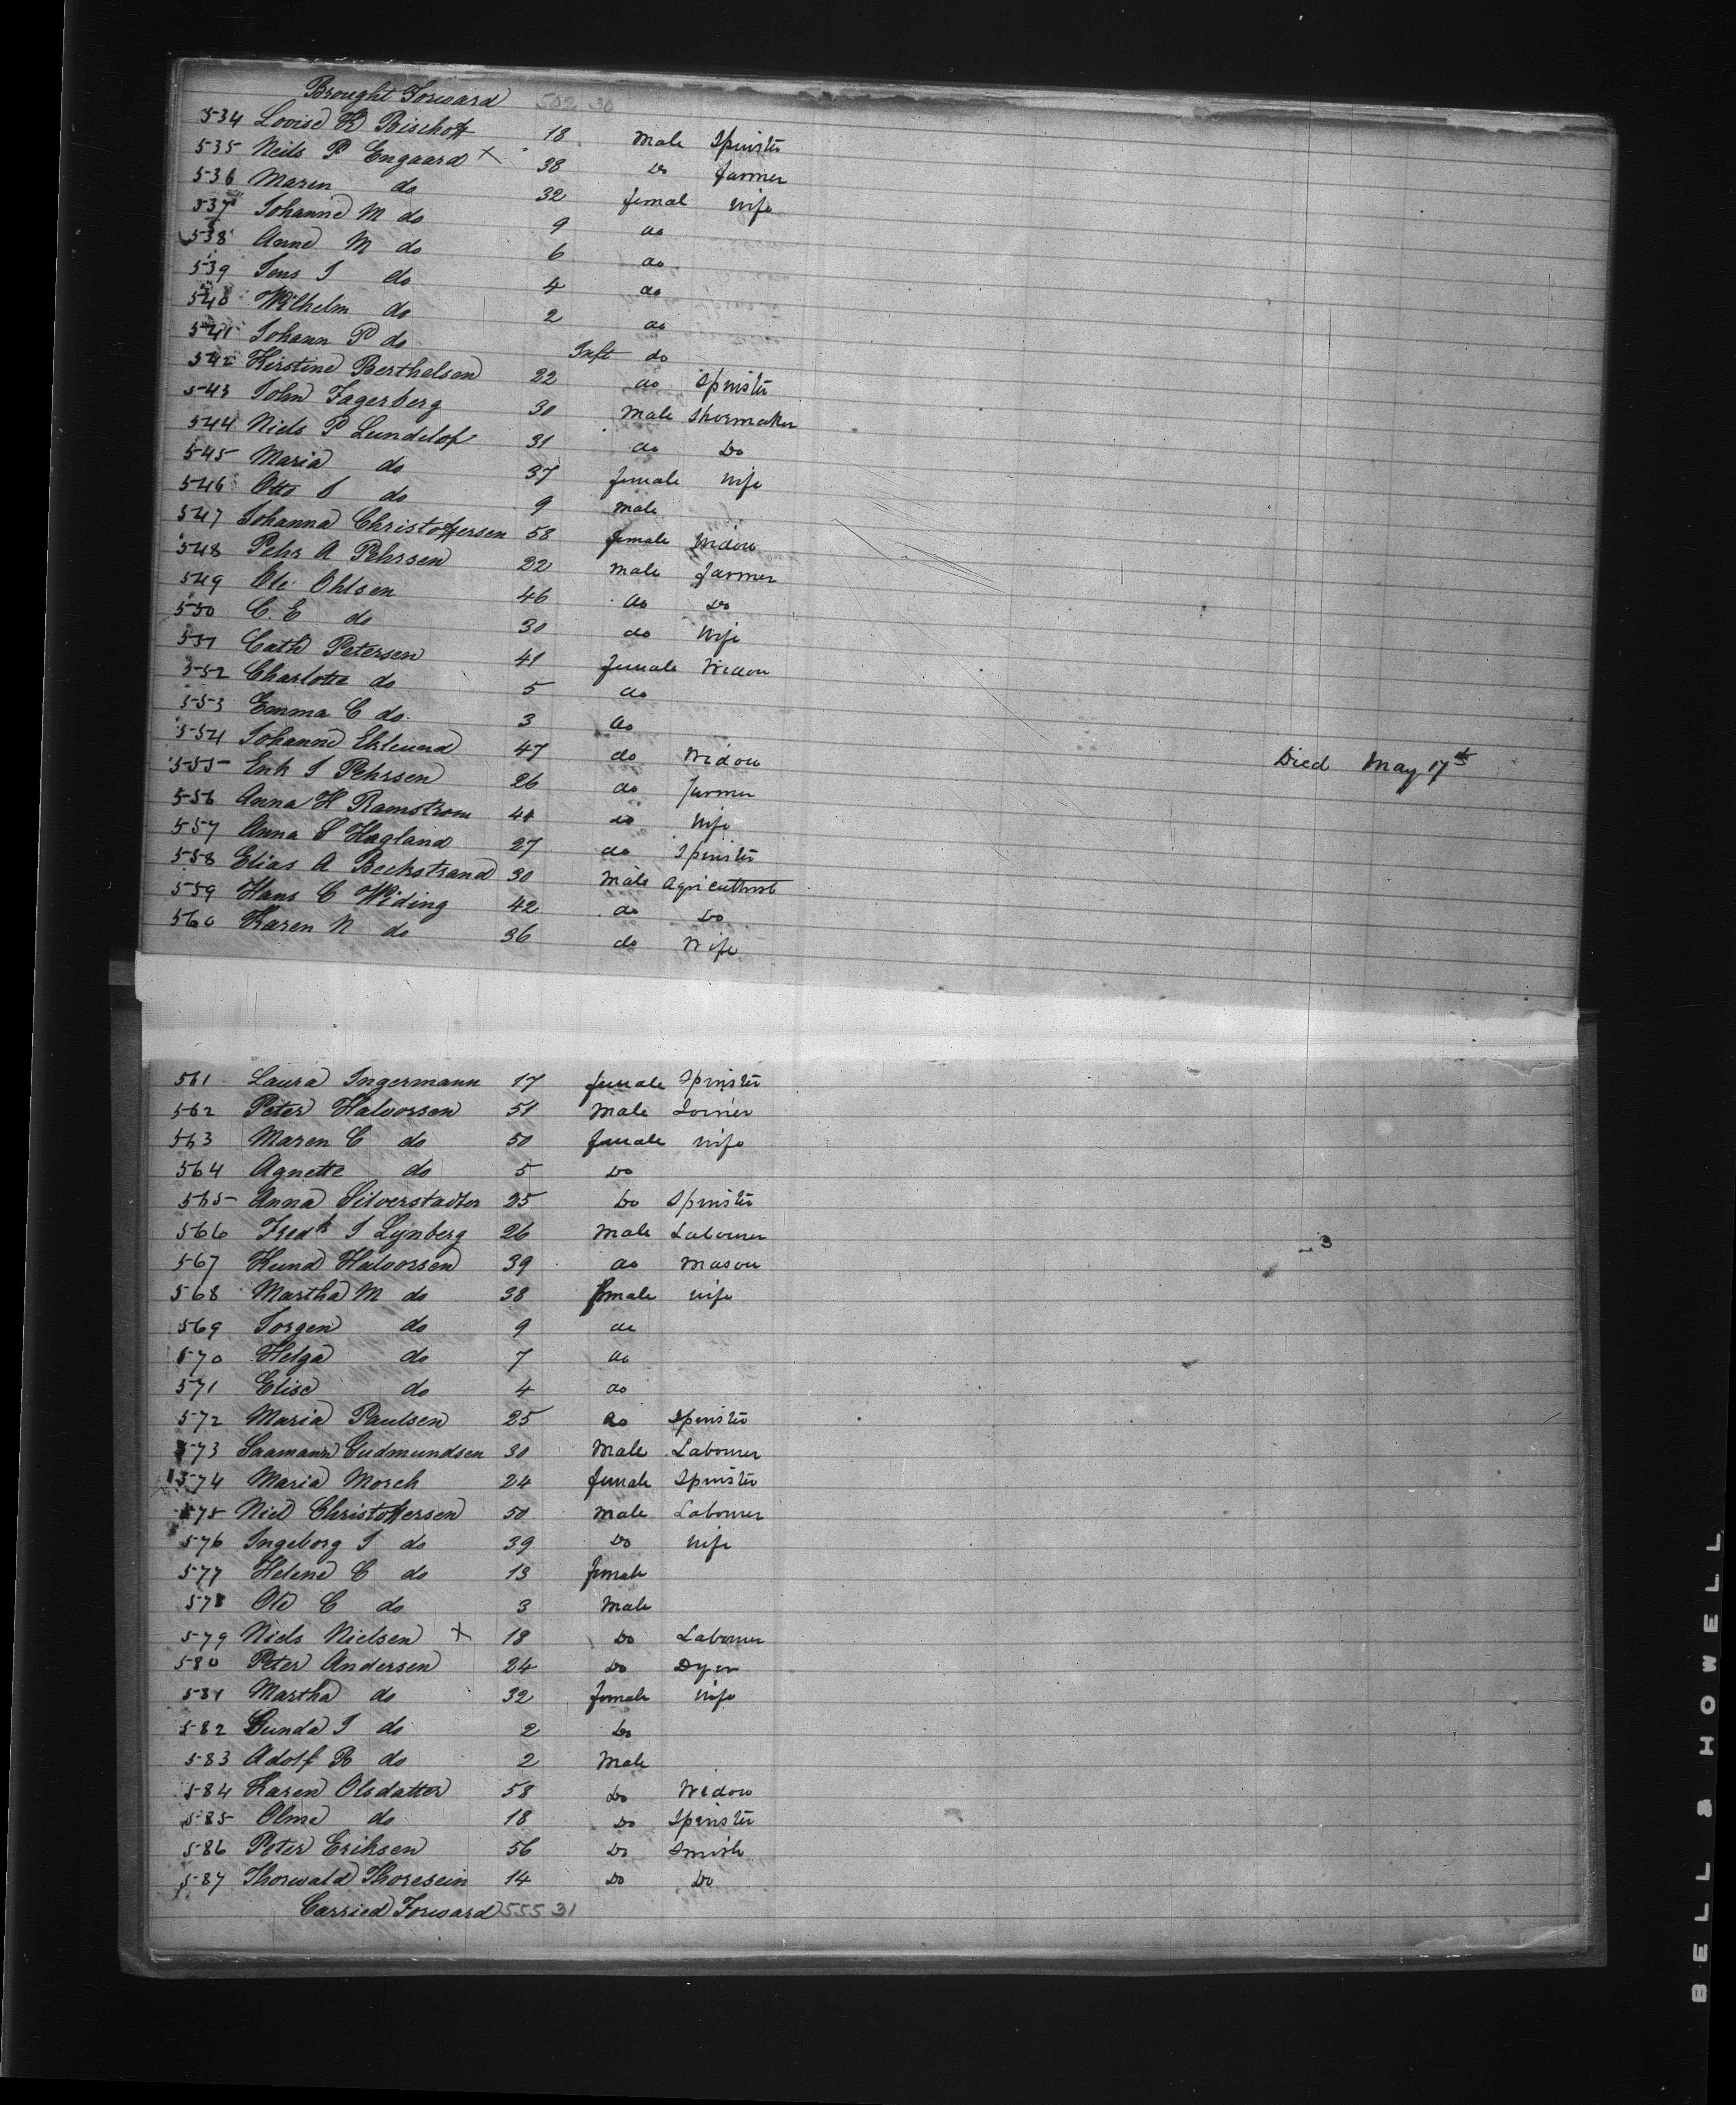 Brought Forward 502 30
534 Lovise K Bischoff 18 Male Spinster
535 Neils P Engaard X 38 Do farmer
536 Maren do 32 femal wife
537 Johanne M do 9 do
538 Anne M do 6 do
539 Jens J do 4 do
540 Wilhelm do 2 do
541 Johann P do Inft do
542 Kirstine Berthelsen 22 do Spinster
543 John Fagerberg 30 Male Shoemaker
544 Niels P Lundelof 31 do Do
545 Maria do 37 female wife
546 Otto S do 9 Male
547 Johanna Christoffersen 58 female Widow
548 Pehr A Pehrsen 22 Male farmer
549 Ole Ohlsen 46 do Do
550 C. E do 30 do Wife
551 Cath Petersen 41 female Widow
552 Charlotte do 5 do
553 Emma C do. 3 do
554 Johanne 47 do Widow Died May 17th
555 Erik J Pehrsen 26 do farmer
556 Anna H Ramstrom 44 do Wife
557 Anna S Hagland 27 do Spinster
558 Elias A Beckstrand 30 Male Agriculturist
559 Hans C Widing 42 do Do
560 Karen N do 36 do Wife
561 Laura Ingermann 17 female Spinster
562 Peter Halvorsen 51 Male Joiner
563 Maren C do 50 female wife
564 Agnette do 5 Do
565 Anna Silverstadter 25 Do Spinster
566 Fredk J Lynberg 26 Male Labourer 3
567 Kund Halvorsen 39 do Mason
568 Martha M do 38 female wife
569 Jorgen do 9 do
570 Helga do 7 do
571 Elise do 4 do
572 Maria Paulsen 25 do Spinster
573 Saamann Gudmundsen 30 Male Labourer
574 Maria Morck 24 female Spinster
575 Niel Christoffersen 50 Male Labourer
576 Ingeborg J do 39 Do wife
577 Helene C do 13 female
578 Ole C do 3 Male
579 Niels Nielsen X 18 Do Labourer
580 Peter Andersen 24 Do Dyer
581 Martha do 32 female wife
582 Gunda J do 2 Do
583 Adolf B do 2 Male
584 Karen Olsdatter 58 Do Widow
585 Olme do 18 Do Spinster
586 Peter Eriksen 56 Do Smith
587 Thorwald Thoresein 14 Do Do
Carried Forward 555 31
BELL & HOWELL